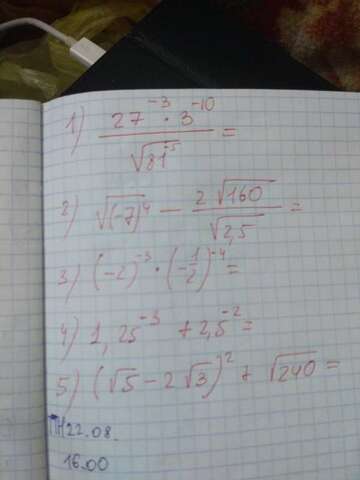 1) 27⁻³ · 3⁻¹⁰ / √81⁻⁵ =
2) √(-7)⁴ - 2√160 / √2,5 =
3) (-2)⁻³ · (-1/2)⁻⁴ =
4) 1,25⁻³ + 2,5⁻² =
5) (√5 - 2√3)² + √240 =
ПН 22.08.
16.00